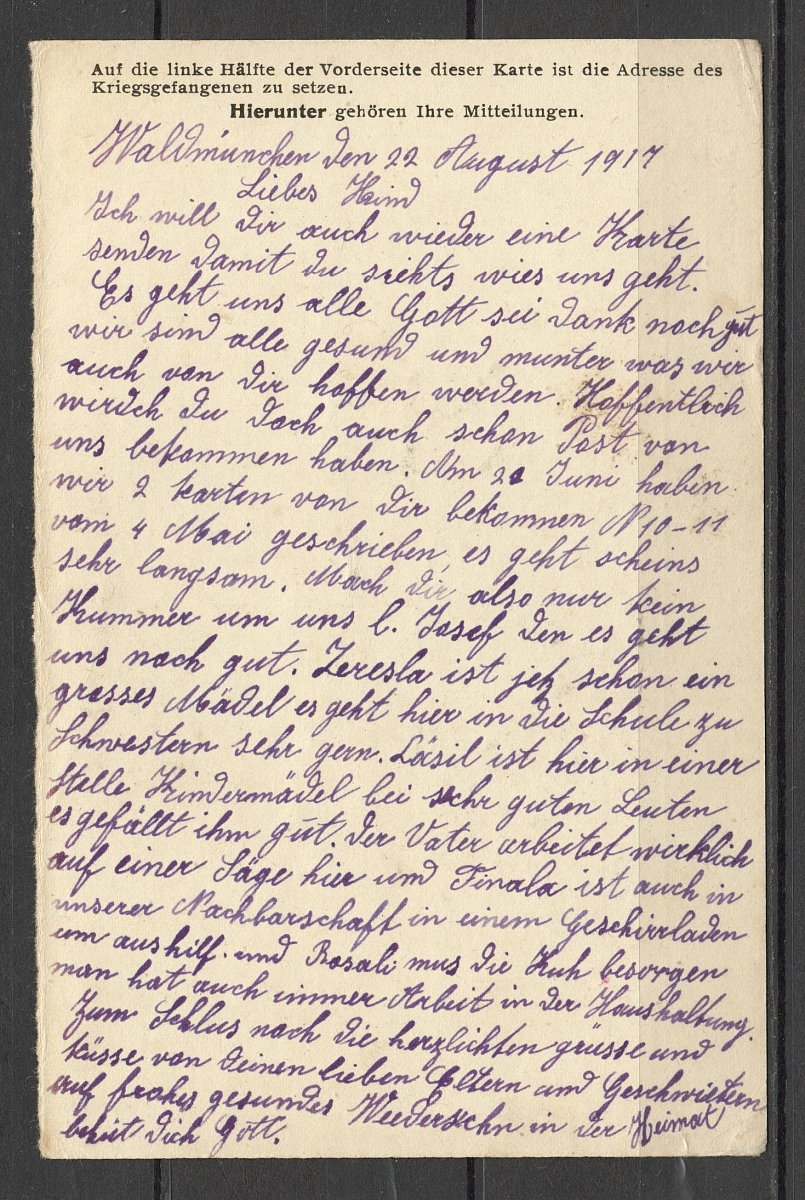 Auf die linke Hälfte der Vorderseite dieser Karte ist die Adresse des
Kriegsgefangenen zu setzen.
Hierunter gehören Ihre Mitteilungen.
Waldmünchen den 22 August 1917
Liebes Kind
Ich will dir auch wieder eine Karte
senden damit du siehts wies uns geht.
Es geht uns alle Gott sei dank noch gut
wir sind alle gesund und munter was wir
auch von dir hoffen werden. Hoffentlich
wirdch du doch auch schon Post von
uns bekommen haben. Am 21 Juni haben
wir 2 karten von dir bekommen N 10-11
vom 4 Mai geschrieben, es geht scheins
sehr langsam. Mach dir also nur kein
Kummer um uns l. Josef den es geht
uns noch gut. Zeresla ist jetz schon ein
grosses Mädel es geht hier in die Schule zu
Schwestern sehr gern. Läsil ist hier in einer
Stelle Kindermädel bei sehr guten Leuten
es gefällt ihm gut. der Vater arbeitet wirklich
auf einer Säge hier und Finala ist auch in
unserer Nachbarschaft in einem Geschirrladen
um aushilf. und Rosali mus die Kuh besorgen
man hat auch immer Arbeit in der Haushaltung.
Zum Schlus noch die herzlichten grüsse und
küsse von deinen lieben Eltern und Geschwistern
auf frohes gesundes Wiedersehn in der Heimat
behüt dich Gott.